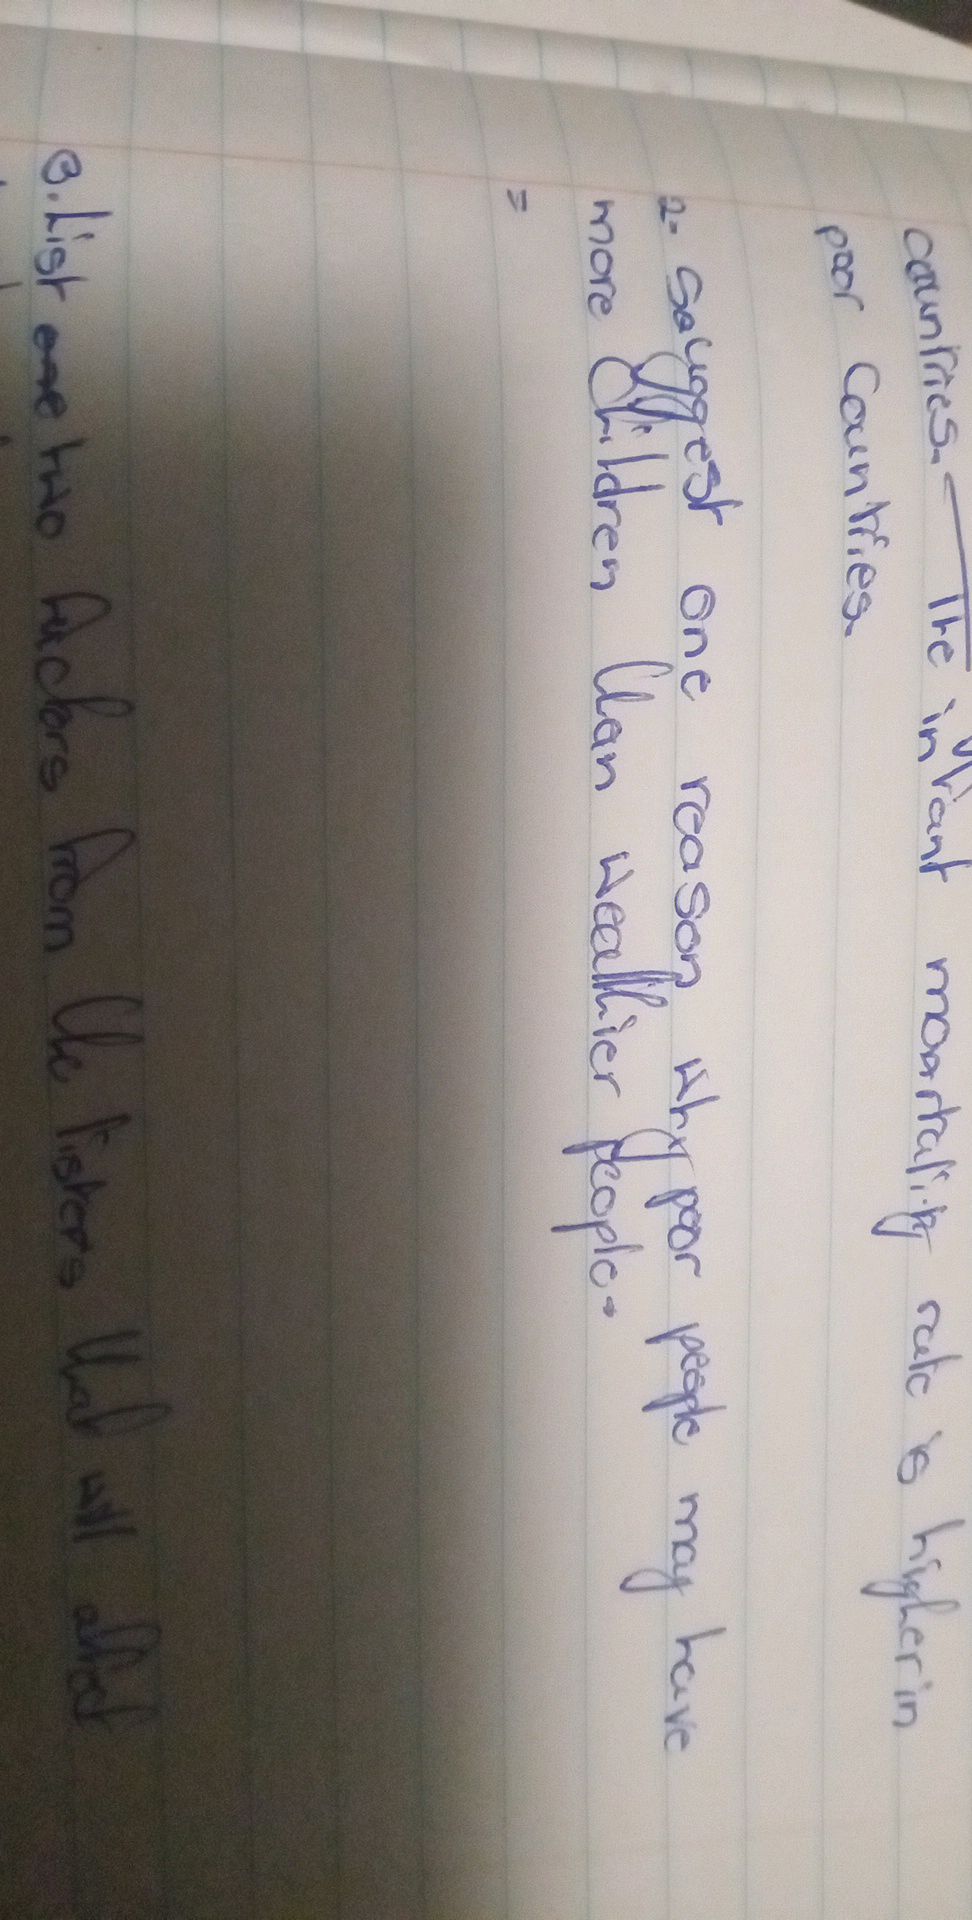 countries. The infant moartality rate is higher in
poor countries.
2. Suggest one reason why poor people may have
more children than wealthier people.
=
3. List two factors from the listers that will affect